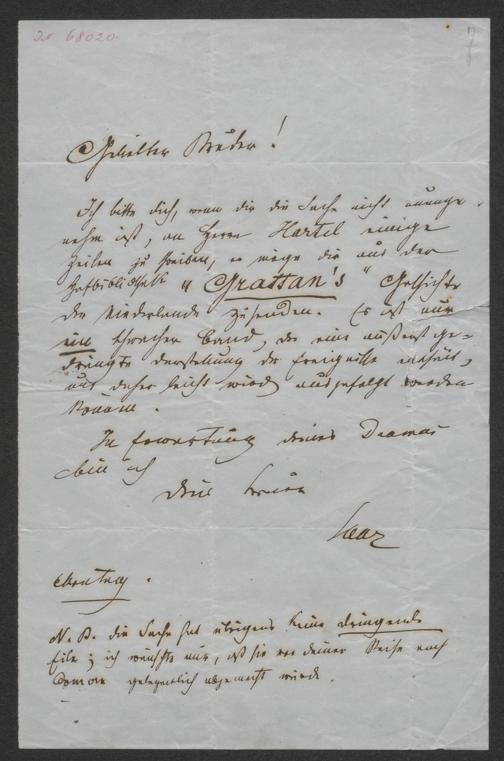 I. N. 68020
7
Geliebter Bruder!
Ich bitte dich, wenn dir die Sache nicht unange-
nehm ist, an Herrn Hartel einige
Zeilen zu schreiben, er möge dir aus der
Hofbibliothek "Grattan's" Geschichte
der Niederlande zusenden. Es ist nur
ein schwacher Band, der eine äußerst ge-
drängte Darstellung der Ereignisse enthält,
und daher leicht wird ausgefolgt werden
können.
In Erwartung deines Dramas
bin ich
dein treuer
Saar
Montag.
N. B. die Sache hat übrigens keine dringende
Eile; ich wünschte nur, daß sie vor deiner Reise nach
gelegentlich abgemacht würde.